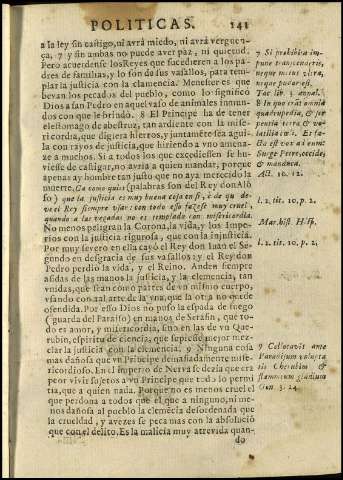 POLITICAS. 141
a la ley sin castigo, ni avrà miedo, ni avrà verguen-
ça, 7 y sin ambas no puede aver paz, ni quietud.
Pero acuerdense los Reyes que sucedieron a los pa-
dres de familias, y lo son de sus vasallos, para tem-
plar la justicia con la clemencia. Menester es que
bevan los pecados del pueblo, como lo significò
Dios a san Pedro en aquel vaso de animales inmun-
dos con que le brindò. 8 El Principe ha de tener
el estomago de abestruz, tan ardiente con la mise-
ricordia, que digiera hierros, y juntamẽte sea agui-
la con rayos de justicia, que hiriendo a vno amena-
ze a muchos. Si a todos los que excediessen se hu-
viesse de castigar, no avria a quien mandar, porque
apenas ay hombre tan justo que no aya merecido la
muerte, Ca como quier (palabras son del Rey don Alõ
so) que la justicia es muy buena cosa en sí, è de que de-
ve el Rey siempre vsar: con todo eso fazese muy cruel,
quando a las vegadas no es templada con misericordia.
No menos peligran la Corona, la vida, y los Impe-
rios con la justicia rigurosa, que con la injusticia.
Por muy severo en ella cayò el Rey don Iuan el Se-
gundo en desgracia de sus vasallos, y el Rey don
Pedro perdiò la vida, y el Reino. Anden siempre
asidas de las manos la justicia, y la clemencia, tan
vnidas, que sean como partes de vn mismo cuerpo,
vsando con tal arte de la vna, que la otra no quede
ofendida. Por esso Dios no puso la espada de fuego
(guarda del Paraiso) en manos de Serafin, que to-
do es amor, y misericordia, sino en las de vn Que-
rubin, espiritu de ciencia, que supiesse mejor mez-
clar la justicia con la clemencia. 9 Ninguna cosa
mas dañosa que vn Principe demasiadamẽte mise-
ricordioso. En el imperio de Nerva se dezia que era
peor vivir sujetos a vn Principe que todo lo permi
tia, que a quien nada. Porque no es menos cruel el
que perdona a todos que el que a ninguno, ni me-
nos dañosa al pueblo la clemẽcia desordenada que
la crueldad, y avezes se peca mas con la absoluciõ
que con el delito. Es la malicia muy atrevida quan-
do
7 Si prohibita im-
pune transcenderis,
neque metus vltra,
neque pudor est.
Tac. lib. 3. annal.
8 In quo erãt omnia
quadrupedia, & ser
pentia terræ & vo-
latilia cœli. Et fa-
cta est vox ad eum:
Surge Petre, occide,
& manduca.
Act. 10. 12.
l. 2. tit. 10. p. 2.
Mar. hist. Hisp.
l. 2. tit. 10. p. 2.
9 Collocavit ante
Paradisum volupta
tis Cherubim &
flammeum gladium
Gen. 3. 24.